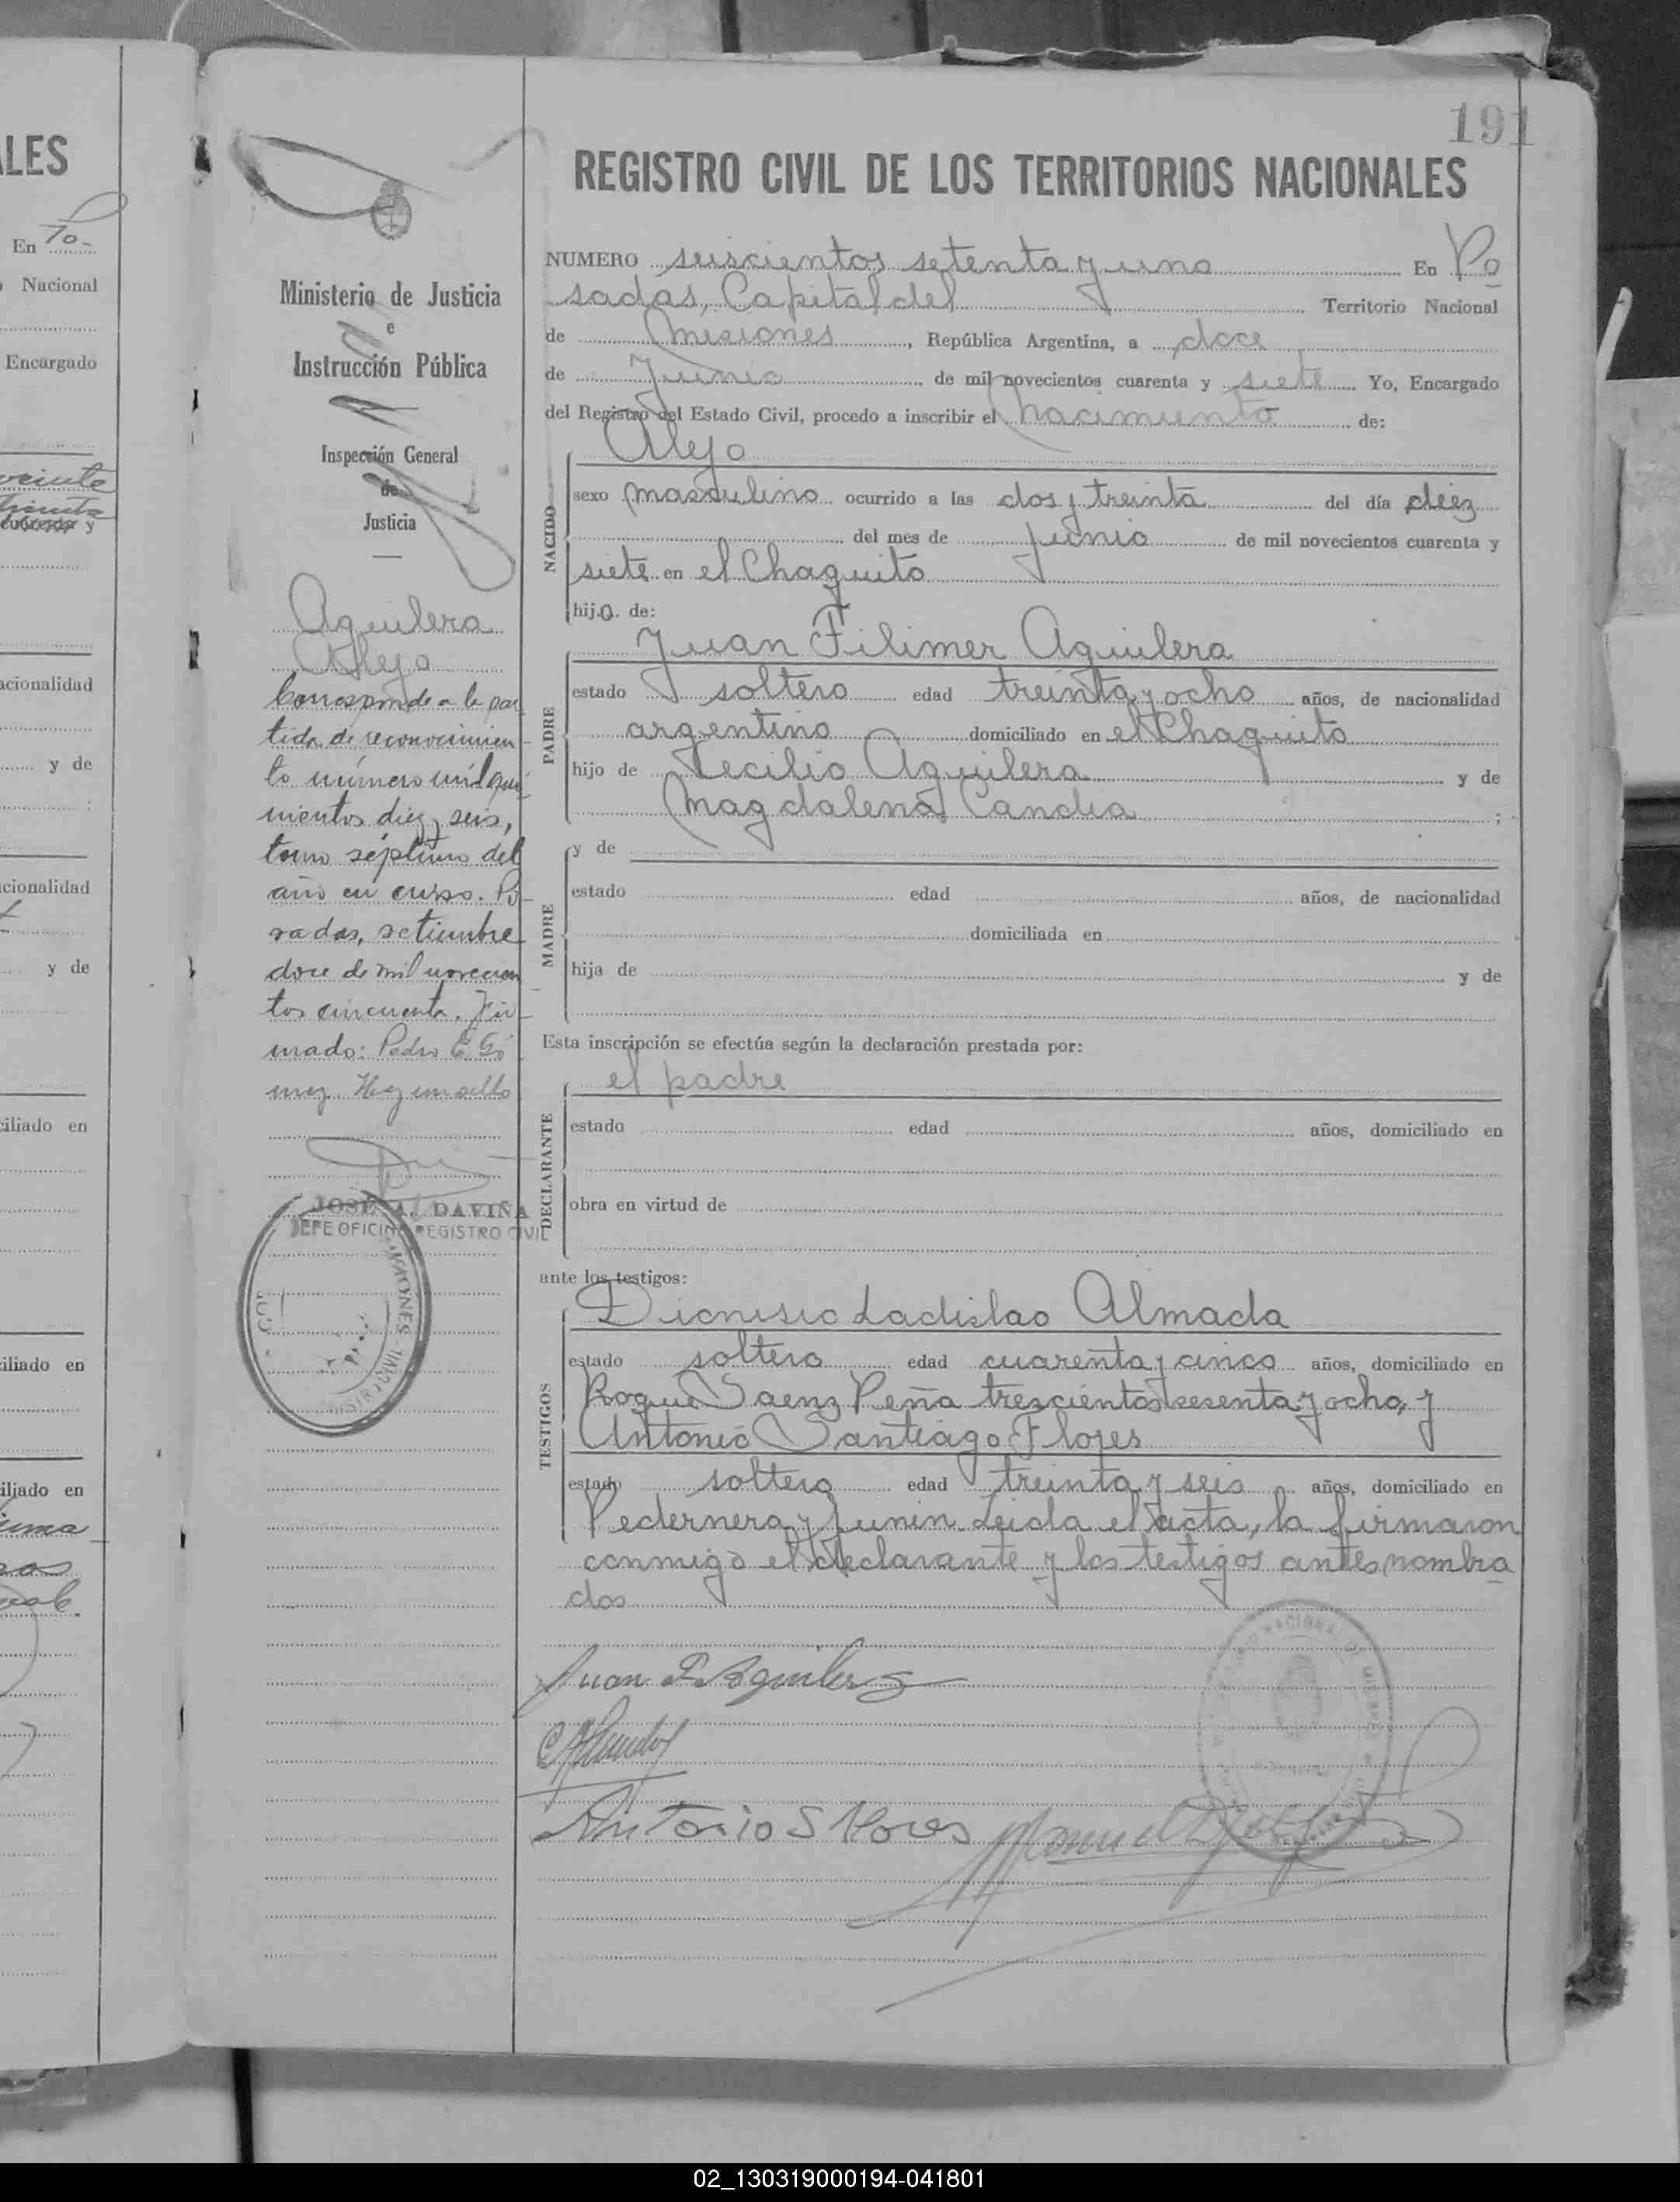 ALES
En Po-
Nacional
Encargado
veinte
treinta
cuarenta y
acionalidad
y de
cionalidad
y de
ciliado en
iliado en
iliado en
191
REGISTRO CIVIL DE LOS TERRITORIOS NACIONALES
Ministerio de Justicia
e
Instrucción Pública
Inspección General
de
Justicia
Aguilera
Alejo
Corresponde a la par
tida de reconocimien-
to número mil qui-
nientos diez y seis,
tomo séptimo del
año en curso. Po-
sadas, setiembre
doce de mil novecien
tos cincuenta. Fir-
mado: Pedro E. Gó
mez. Hay un sello
JOSE A. DAVIÑA
JEFE OFICINA REGISTRO CIVIL
NUMERO seiscientos setenta y uno En Po
sadas, Capital del Territorio Nacional
de Misiones, República Argentina, a doce
de Junio de mil novecientos cuarenta y siete Yo, Encargado
del Registro del Estado Civil, procedo a inscribir el nacimiento de:
NACIDO
Alejo
sexo masculino ocurrido a las dos y treinta del día diez
del mes de junio de mil novecientos cuarenta y
siete en el Chaquito
hijo de:
PADRE
Juan Filimer Aguilera
estado soltero edad treinta y ocho años, de nacionalidad
argentino domiciliado en el Chaquito
hijo de Cecilio Aguilera y de
Magdalena Candia ;
MADRE
y de
estado edad años, de nacionalidad
domiciliada en
hija de y de
Esta inscripción se efectúa según la declaración prestada por:
DECLARANTE
el padre
estado edad años, domiciliado en
obra en virtud de
ante los testigos:
TESTIGOS
Dionisio Ladislao Almada
estado soltero edad cuarenta y cinco años, domiciliado en
Roque Saenz Peña trescientos sesenta y ocho, y
Antonio Santiago Flores
estado soltero edad treinta y seis años, domiciliado en
Pedernera y Junin. Leida el acta, la firmaron
conmigo el declarante y los testigos antes nombra
dos
Juan F Aguilera
Antonio S Flores
02_130319000194-041801